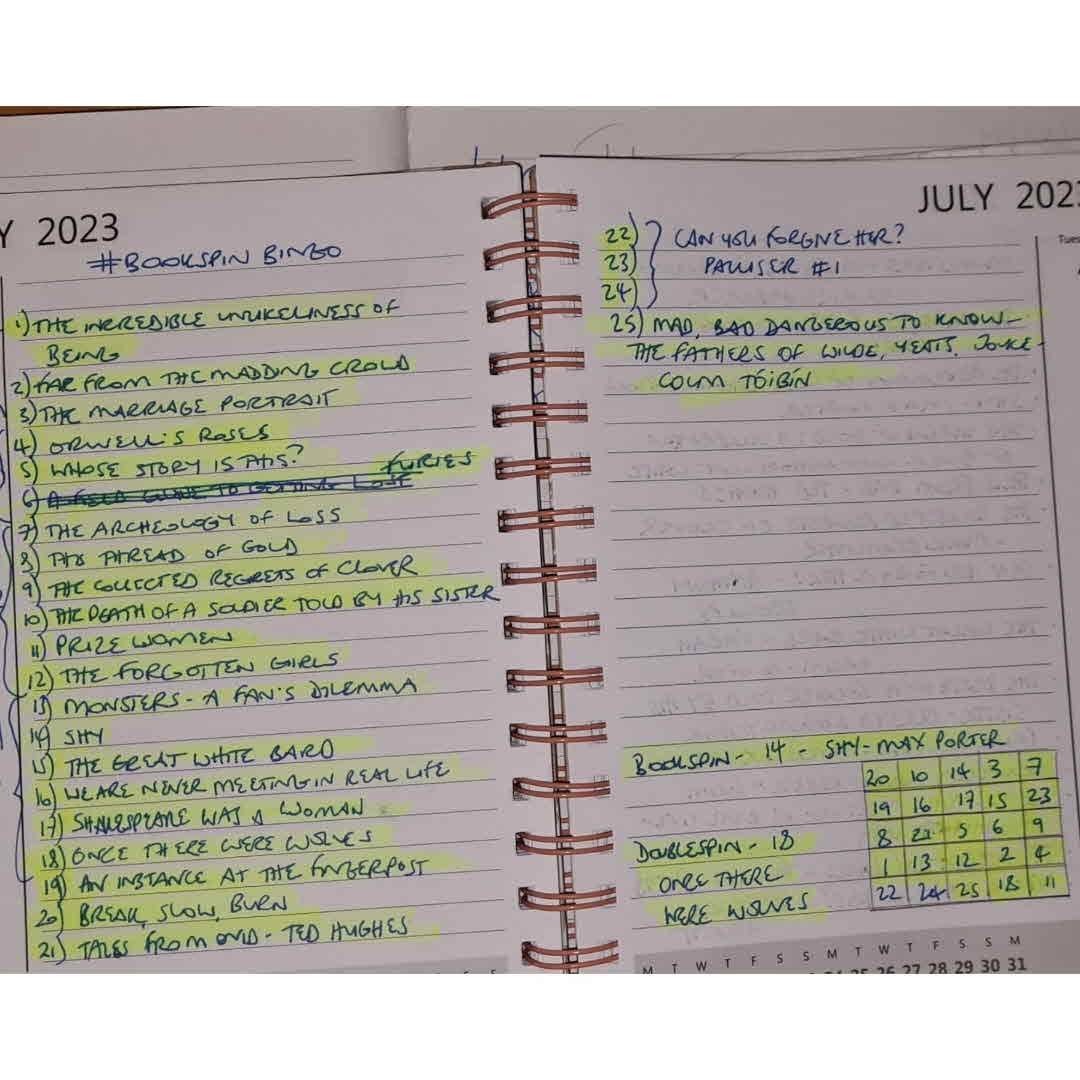 Y 2023
#BOOKSPIN BINGO
1) THE INCREDIBLE UNLIKELINESS OF
BEING
2) FAR FROM THE MADDING CROWD
3) THE MARRIAGE PORTRAIT
4) ORWELL'S ROSES
5) WHOSE STORY IS THIS?
FURIES
6) A FIELD GUIDE TO GETTING LOST
7) THE ARCHEOLOGY OF LOSS
8) THE THREAD OF GOLD
9) THE COLLECTED REGRETS OF CLOVER
10) THE DEATH OF A SOLDIER TOLD BY HIS SISTER
11) PRIZE WOMEN
12) THE FORGOTTEN GIRLS
13) MONSTERS - A FAN'S DILEMMA
14) SHY
15) THE GREAT WHITE BARD
16) WE ARE NEVER MEETING IN REAL LIFE
17) SHAKESPEARE WAS A WOMAN
18) ONCE THERE WERE WOLVES
19) AN INSTANCE AT THE FINGERPOST
20) BREAK, SLOW, BURN
21) TALES FROM OVID - TED HUGHES
JULY 202
22) CAN YOU FORGIVE HER?
23) PALLISER #1
24)
25) MAD, BAD DANGEROUS TO KNOW -
THE FATHERS OF WILDE, YEATS, JOYCE -
COLM TÓIBÍN
BOOKSPIN - 14 - SHY - MAX PORTER
20 10 14 3 7
19 16 17 15 23
8 21 5 6 9
1 13 12 2 4
22 24 25 18 11
DOUBLESPIN - 18
ONCE THERE
WERE WOLVES
M T W T F S S M T W T F S S M
25 26 27 28 29 30 31